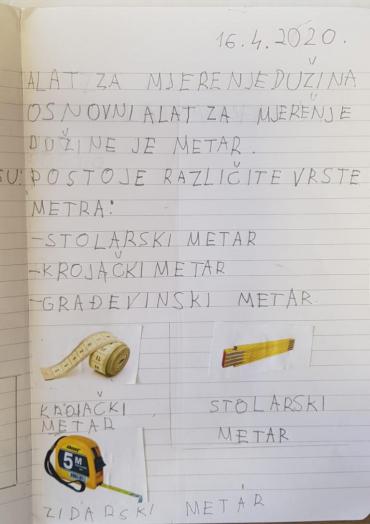 16.4.2020.
ALAT ZA MJERENJE DUŽINA
OSNOVNI ALAT ZA MJERENJE
DUŽINE JE METAR.
SU: POSTOJE RAZLIČITE VRSTE
METRA:
-STOLARSKI METAR
-KROJAČKI METAR
-GRAĐEVINSKI METAR
KROJAČKI
METAR
STOLARSKI
METAR
5M
ZIDARSKI METAR